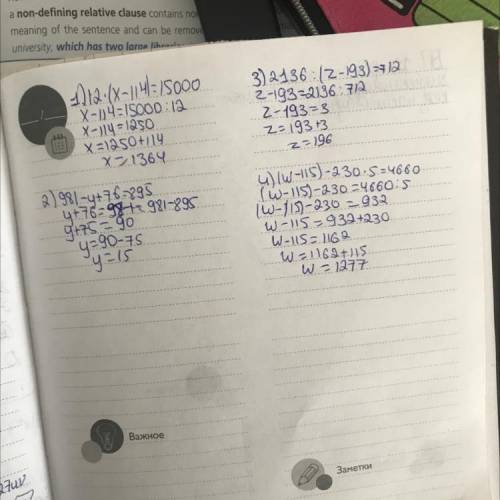 a non-defining relative clause contains
meaning of the sentence and can be remove
university, which has two large
1) 12·(x-114)=15000
x-114=15000:12
x-114=1250
x=1250+114
x=1364
2) 981-y+76=895
y+76= 981-895
y+75=90
y=90-75
y=15
3) 2136:(z-193)=712
z-193=2136:712
z-193=3
z=193+3
z=196
4) (w-115)-230·5=4660
(w-115)-230=4660:5
(w-115)-230=932
w-115=932+230
w-115=1162
w=1162+115
w=1277
Важное
Заметки